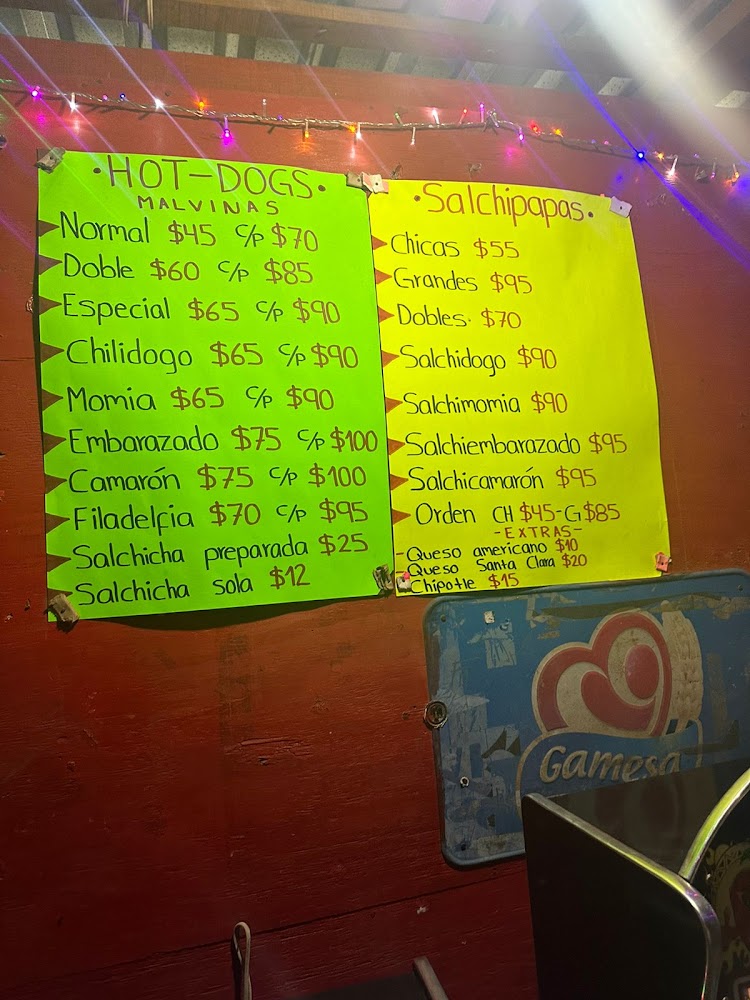 •HOT-DOGS•
MALVINAS
Normal $45 C/P $70
Doble $60 C/P $85
Especial $65 C/P $90
Chilidogo $65 C/P $90
Momia $65 C/P $90
Embarazado $75 C/P $100
Camarón $75 C/P $100
Filadelfia $70 C/P $95
Salchicha preparada $25
Salchicha sola $12
•Salchipapas•
Chicas $55
Grandes $95
Dobles· $70
Salchidogo $90
Salchimomia $90
Salchiembarazado $95
Salchicamarón $95
Orden CH $45-G $85
-EXTRAS-
-Queso americano $10
-Queso Santa Clara $20
Chipotle $15
Gamesa